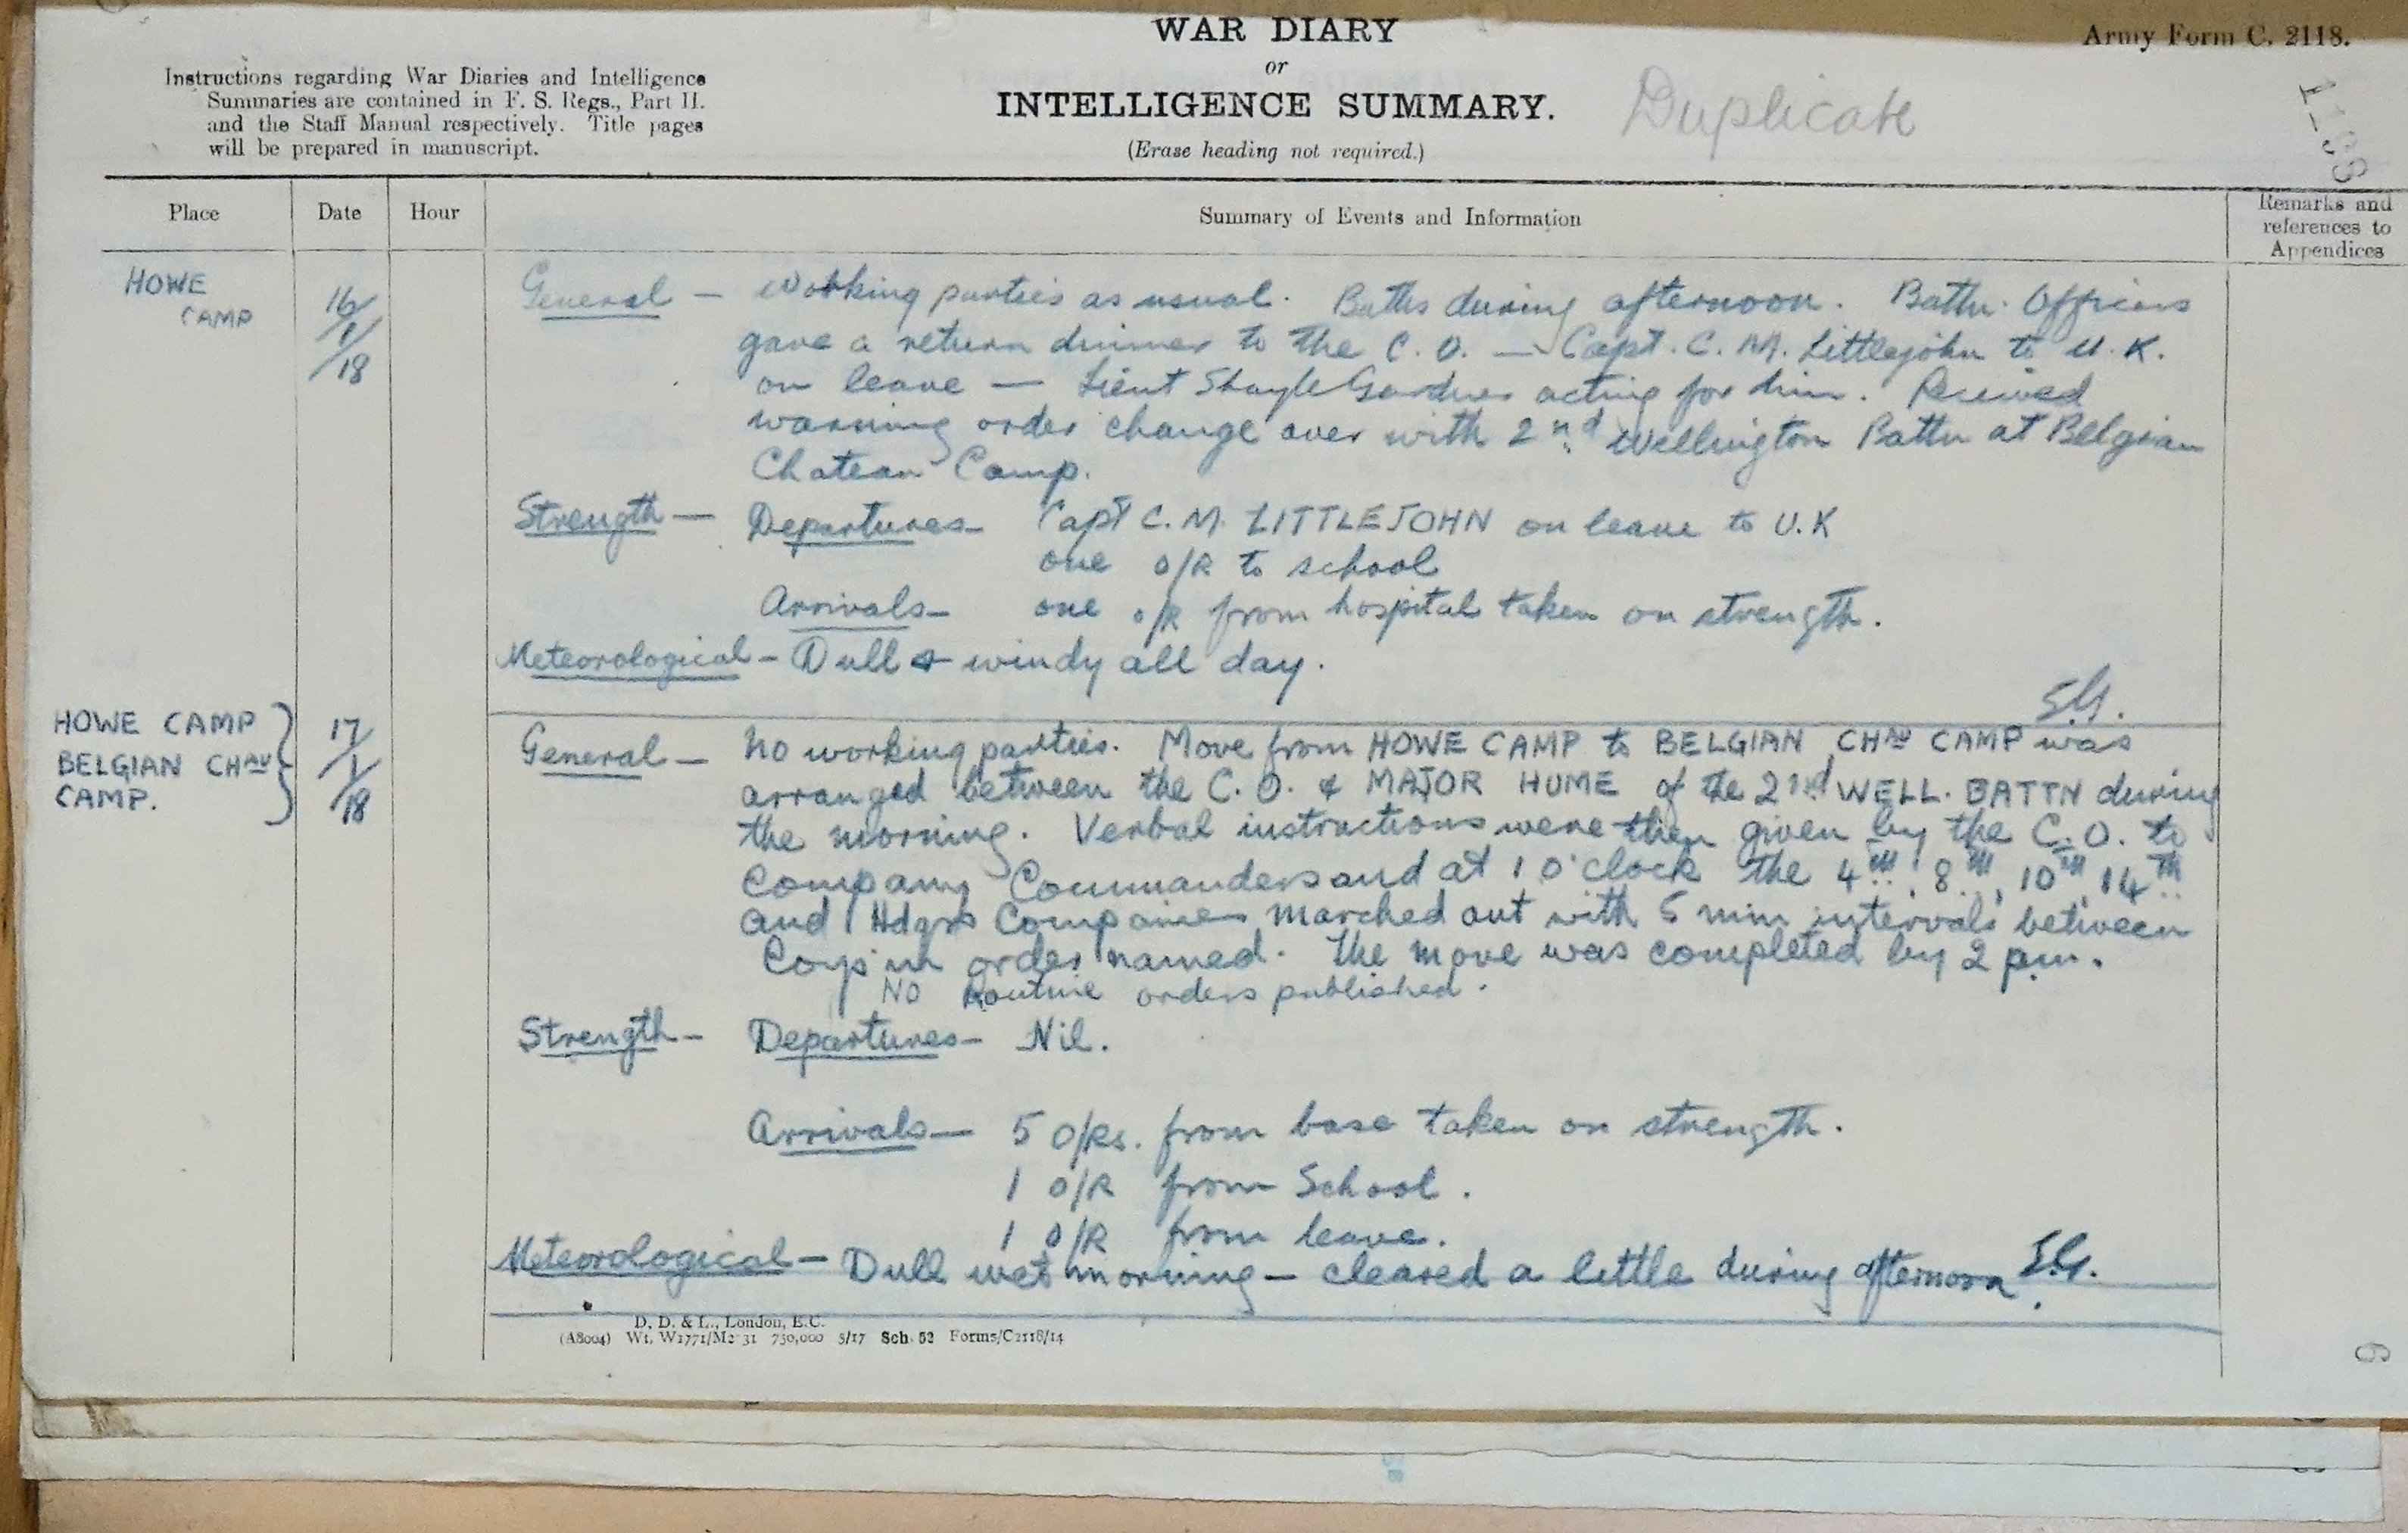 WAR DIARY
or
INTELLIGENCE SUMMARY.
(Erase heading not required.)
Army Form C. 2118.
Duplicate
Instructions regarding War Diaries and Intelligence
Summaries are contained in F. S. Regs., Part II.
and the Staff Manual respectively. Title pages
will be prepared in manuscript.
Place Date Hour Summary of Events and Information Remarks and
references to
Appendices
HOWE
CAMP
16/
1/
/18
General — Working parties as usual. Baths during afternoon. Battn. Officers
gave a return dinner to the C. O. — Capt. C. M. Littlejohn to U. K.
on leave — Lieut Shayle Gardner acting for him. Received
warning order change over with 2nd Wellington Battn at Belgian
Chateau Camp.
Strength — Departures — Capt C. M. LITTLEJOHN on leave to U.K
one O/R to school
Arrivals — one O/R from hospital taken on strength.
Meteorological — Dull & windy all day.
S.G.
HOWE CAMP
BELGIAN CHAU
CAMP.
17/
1/
/18
General — No working parties. Move from HOWE CAMP to BELGIAN CHAU CAMP was
arranged between the C. O. & MAJOR HUME of the 2nd WELL. BATTN during
the morning. Verbal instructions were then given by the C. O. to
Company Commanders and at 1 o'clock the 4TH, 8TH, 10TH, 14TH
and Hdqrs Companies marched out with 5 min intervals between
Coys in order named. The move was completed by 2 pm.
No Routine orders published.
Strength — Departures — Nil.
Arrivals — 5 O/Rs. from base taken on strength.
1 O/R from School.
1 O/R from leave.
Meteorological — Dull wet morning — cleared a little during afternoon. S.G.
D. D. & L., London, E.C.
(A8004) Wt. W1771/M2 31 750,000 5/17 Sch. 52 Forms/C2118/14